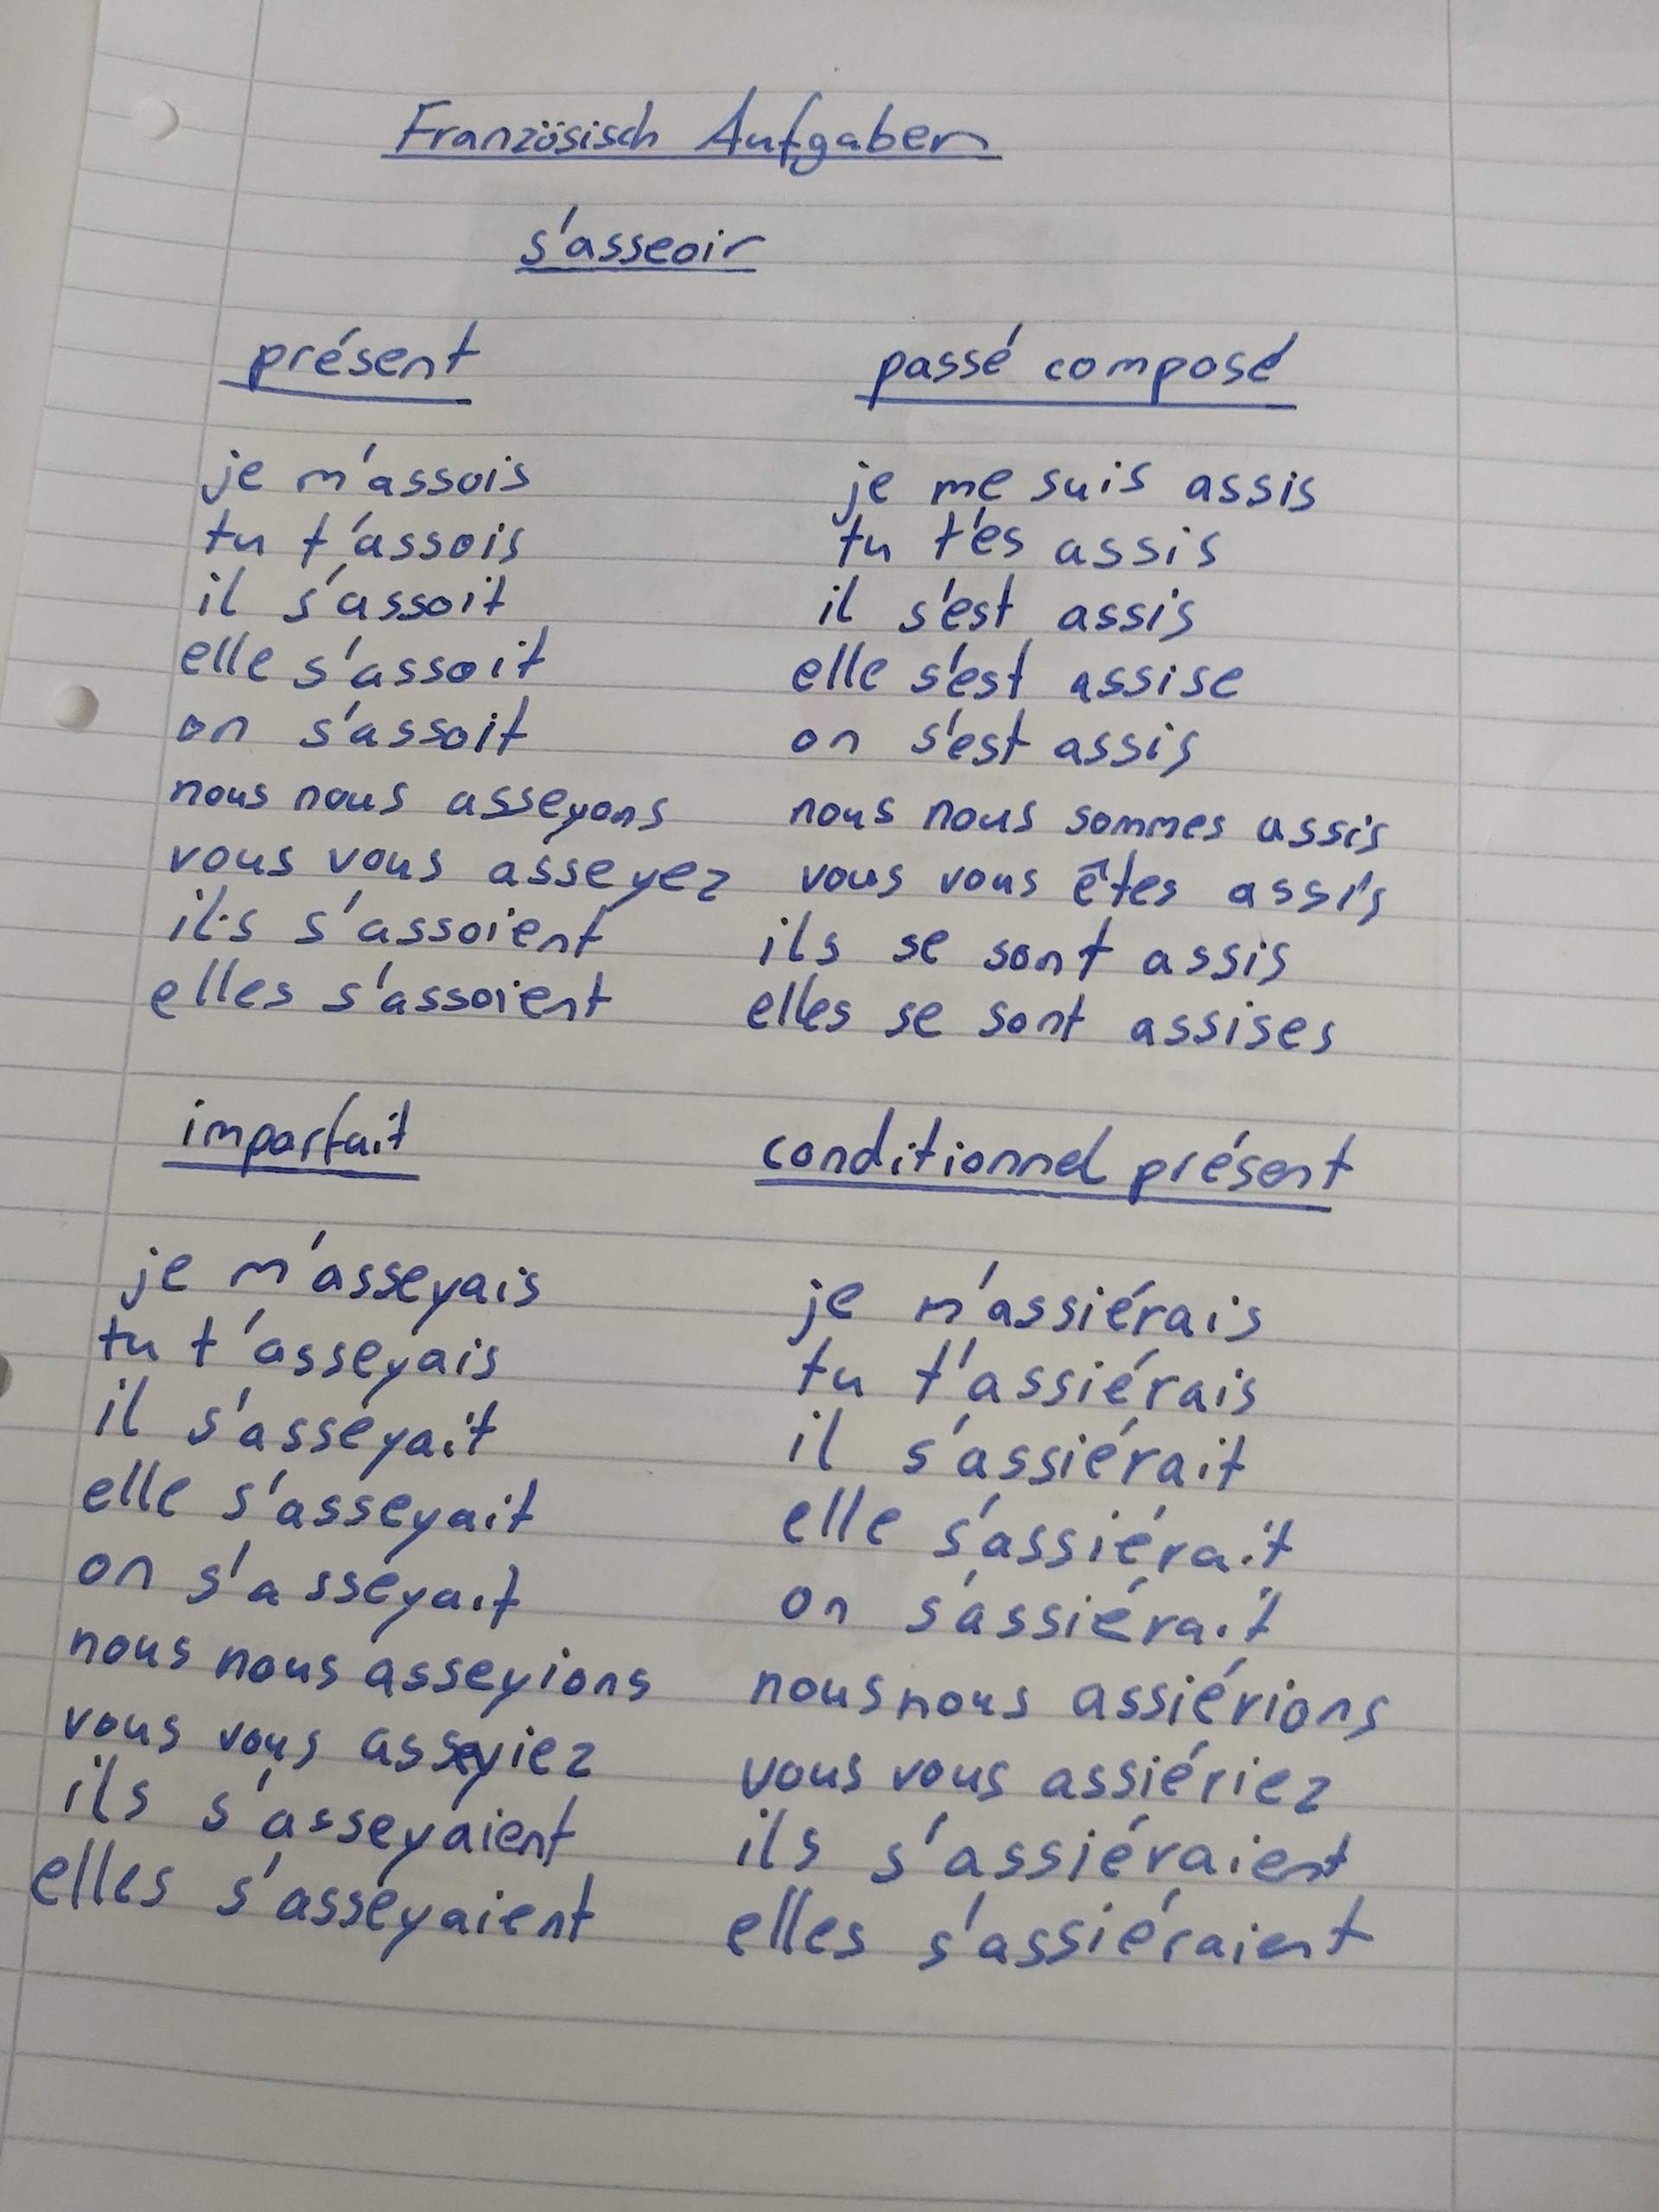 Französisch Aufgaben
s'asseoir
présent
je m'assois
tu t'assois
il s'assoit
elle s'assoit
on s'assoit
nous nous asseyons
vous vous asseyez
ils s'assoient
elles s'assoient
passé composé
je me suis assis
tu t'es assis
il s'est assis
elle s'est assise
on s'est assis
nous nous sommes assis
vous vous êtes assis
ils se sont assis
elles se sont assises
imparfait
je m'asseyais
tu t'asseyais
il s'asseyait
elle s'asseyait
on s'asseyait
nous nous asseyions
vous vous asseyiez
ils s'asseyaient
elles s'asseyaient
conditionnel présent
je m'assiérais
tu t'assiérais
il s'assiérait
elle s'assiérait
on s'assiérait
nous nous assiérions
vous vous assiériez
ils s'assiéraient
elles s'assiéraient